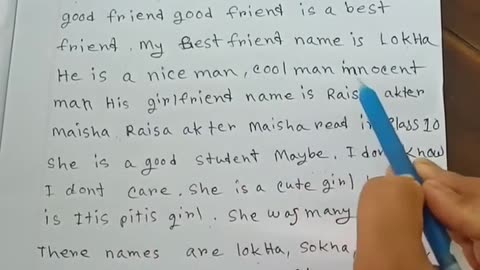 good friend good friend is a best
friend. My Best friend name is LOKHA
He is a nice man, cool man innocent
man His girlfriend name is Raisa akter
maisha. Raisa akter Maisha read in Class 10
She is a good student Maybe. I dont know
I dont care. She is a cute girl
is Itis pitis girl. She was many
There names are lokHa, Sokha,